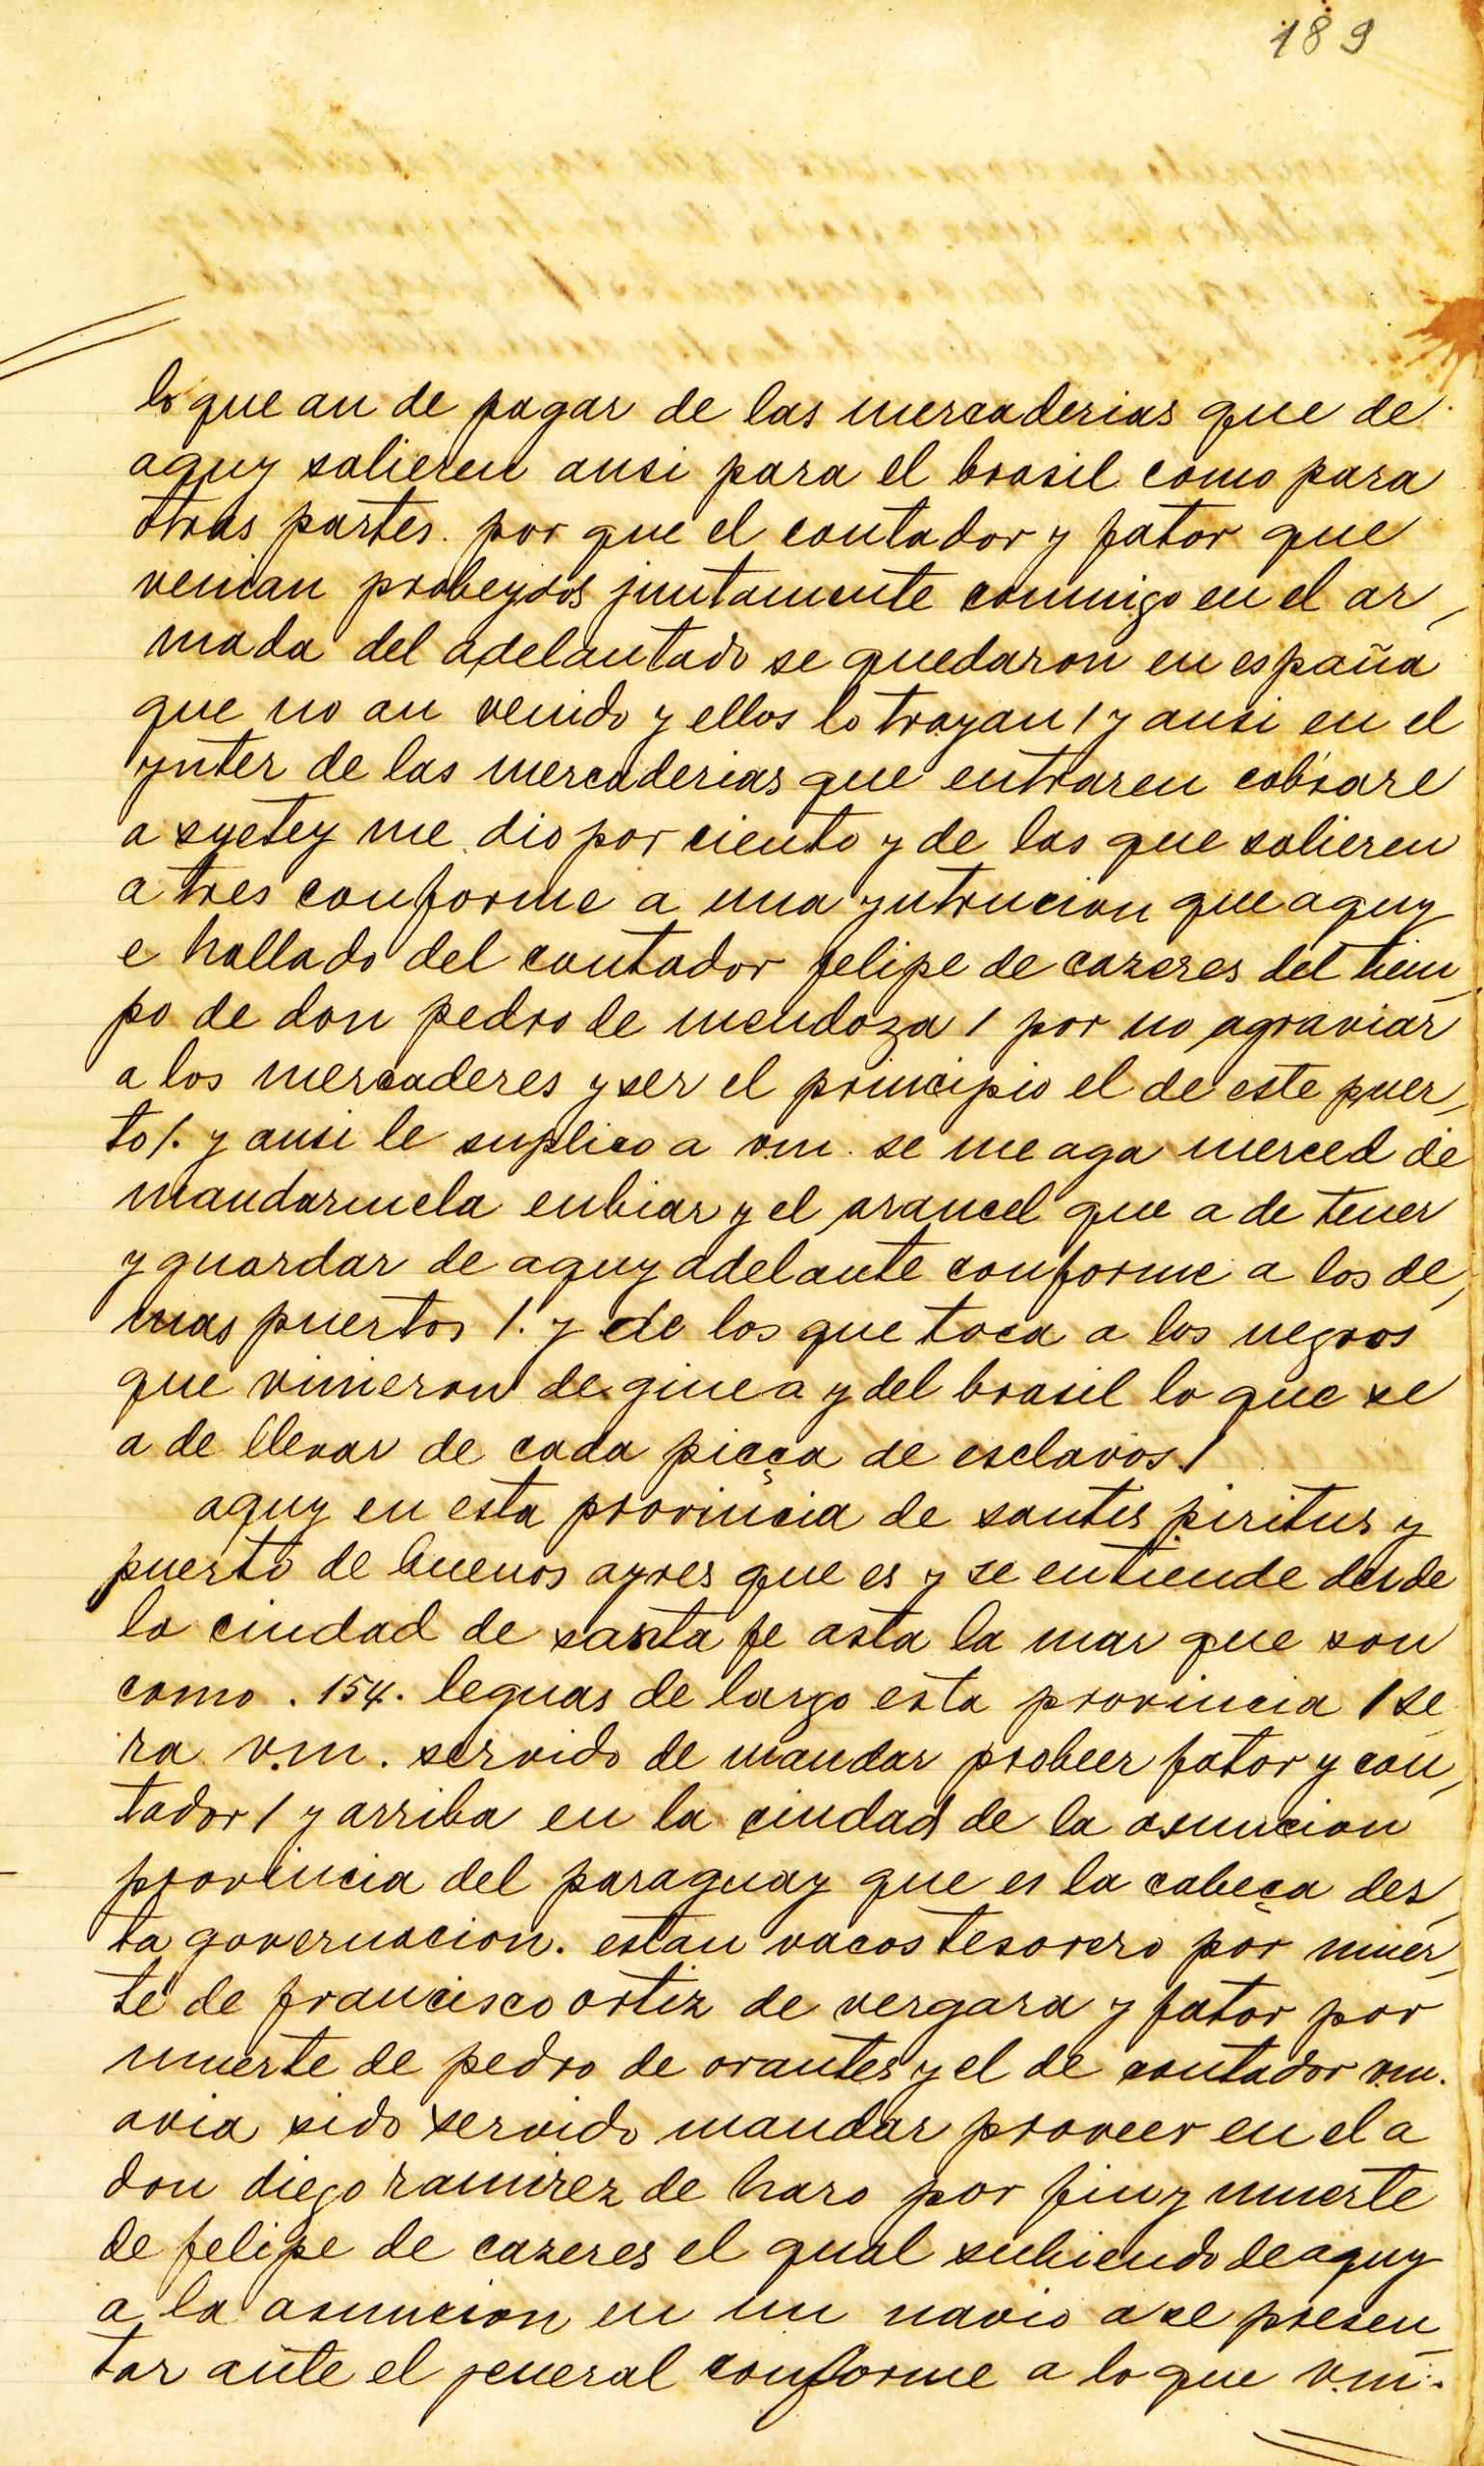 189
lo que an de pagar de las mercaderias que de
aquy salieren ansi para el brasil como para
otras partes. por que el contador y fator que
venian probeydos juntamente conmigo en el ar,
mada del adelantado se quedaron en españa
que no an venido y ellos lo trayan / y ansi en el
ynter de las mercaderias que entraren cobrare
a syete y me dio por ciento y de las que salieren
a tres conforme a una yntrucion que aquy
e hallado del contador felipe de cazeres del tiem,
po de don pedro de mendoza / por no agraviar
a los mercaderes y ser el principio el de este puer,
to /. y ansi le suplico a v.m. se me aga merced de
mandarmela enbiar y el arancel que a de tener
y guardar de aquy adelante conforme a los de,
mas puertos /. y de los que toca a los negros
que vinieron de ginea y del brasil lo que se
a de llevar de cada pieça de esclavos. /
aquy en esta provincia de santis piritus y
puerto de buenos ayres que es y se entiende desde
la ciudad de santa fe asta la mar que son
como . 154. leguas de largo esta provincia / se
ra v.m. servido de mandar probeer fator y con,
tador / y arriba en la ciudad de la asuncion
provincia del paraguay que es la cabeça des,
ta governacion. estan vacos tesorero por muer,
te de francisco ortiz de vergara y fator por
muerte de pedro de orantes y el de contador v.m.
avia sido servido mandar proveer en el a
don diego ramirez de haro por fin y muerte
de felipe de cazeres el qual subiendo de aquy
a la asuncion en un navio a se presen,
tar ante el jeneral conforme a lo que v.m.